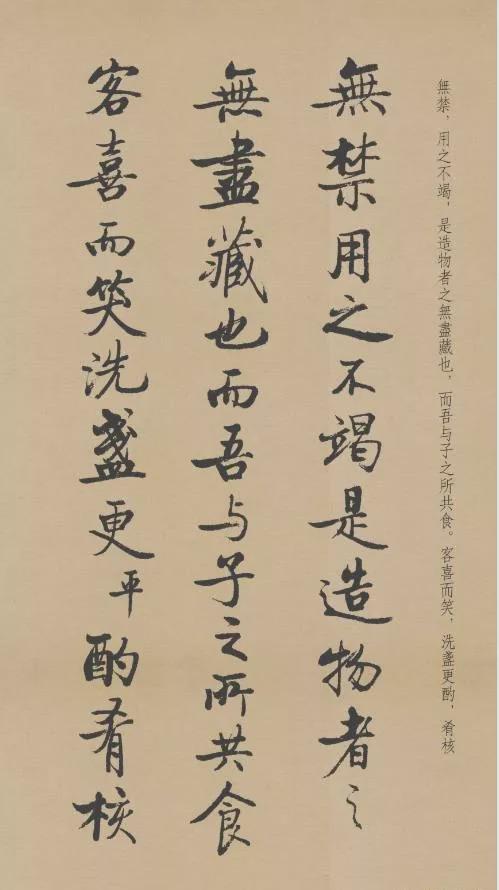 無禁，用之不竭，是造物者之無盡藏也，而吾与子之所共食。客喜而笑，洗盞更酌，肴核
無禁用之不竭是造物者之
無盡藏也而吾与子之所共食
客喜而笑洗盞更平酌肴核